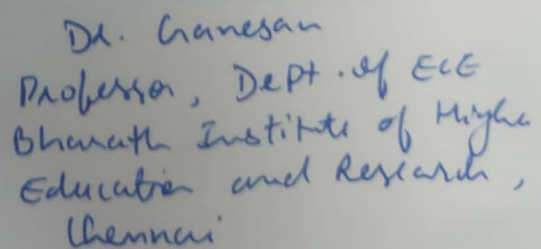 Dr. Ganesan
Professor, Dept. of ECE
Bharath Institute of Higher
Education and Research,
Chennai